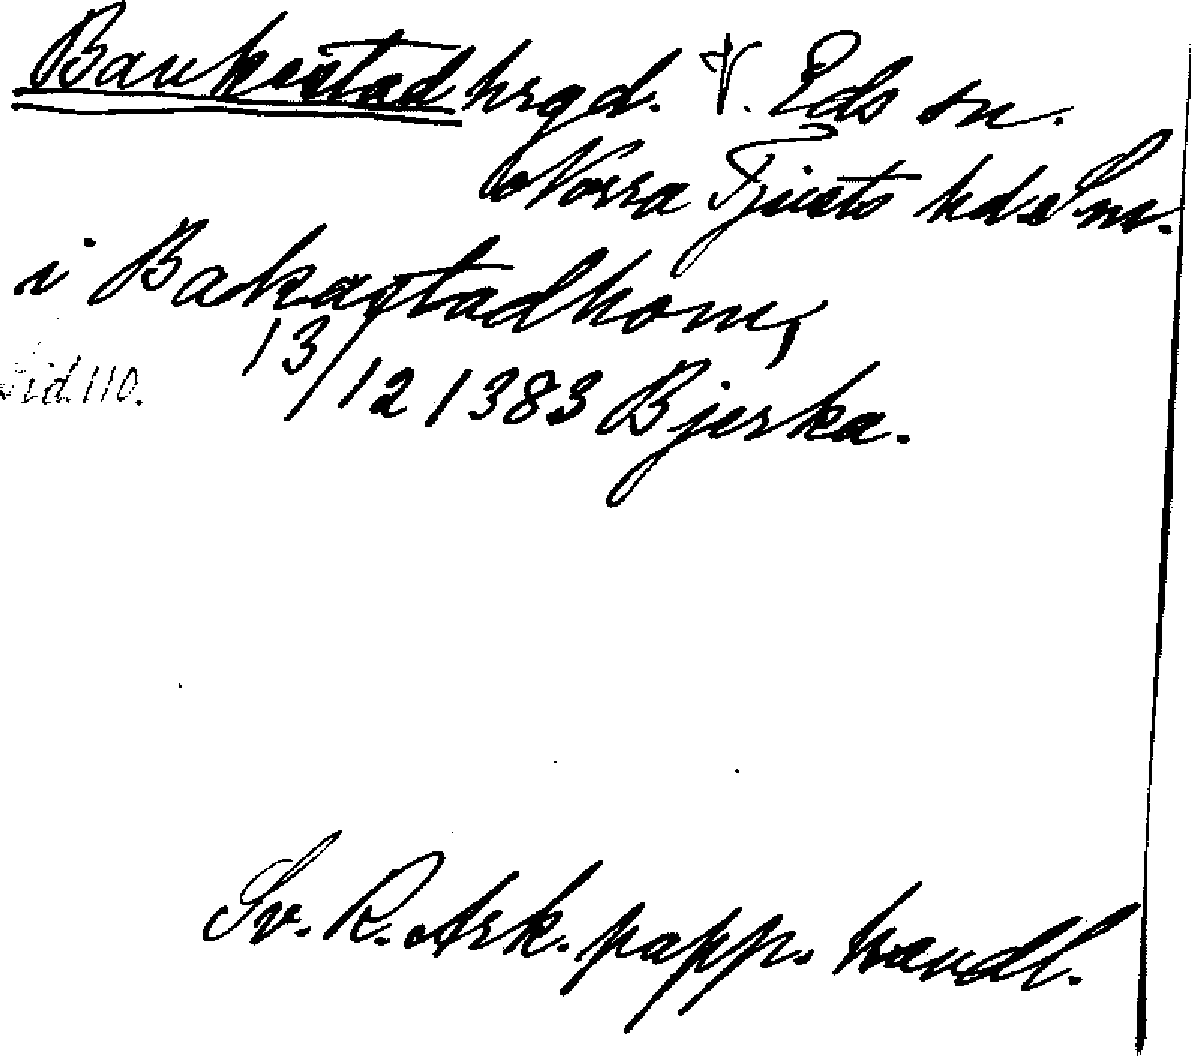 Baukestad hrgd. V. Eds sn.
Norra Tjusts hds Sm.
i Bakastadhom,
13/12 1383 Bjerka.
Sid. 110.
Sv. R. Ark. papp. handl.